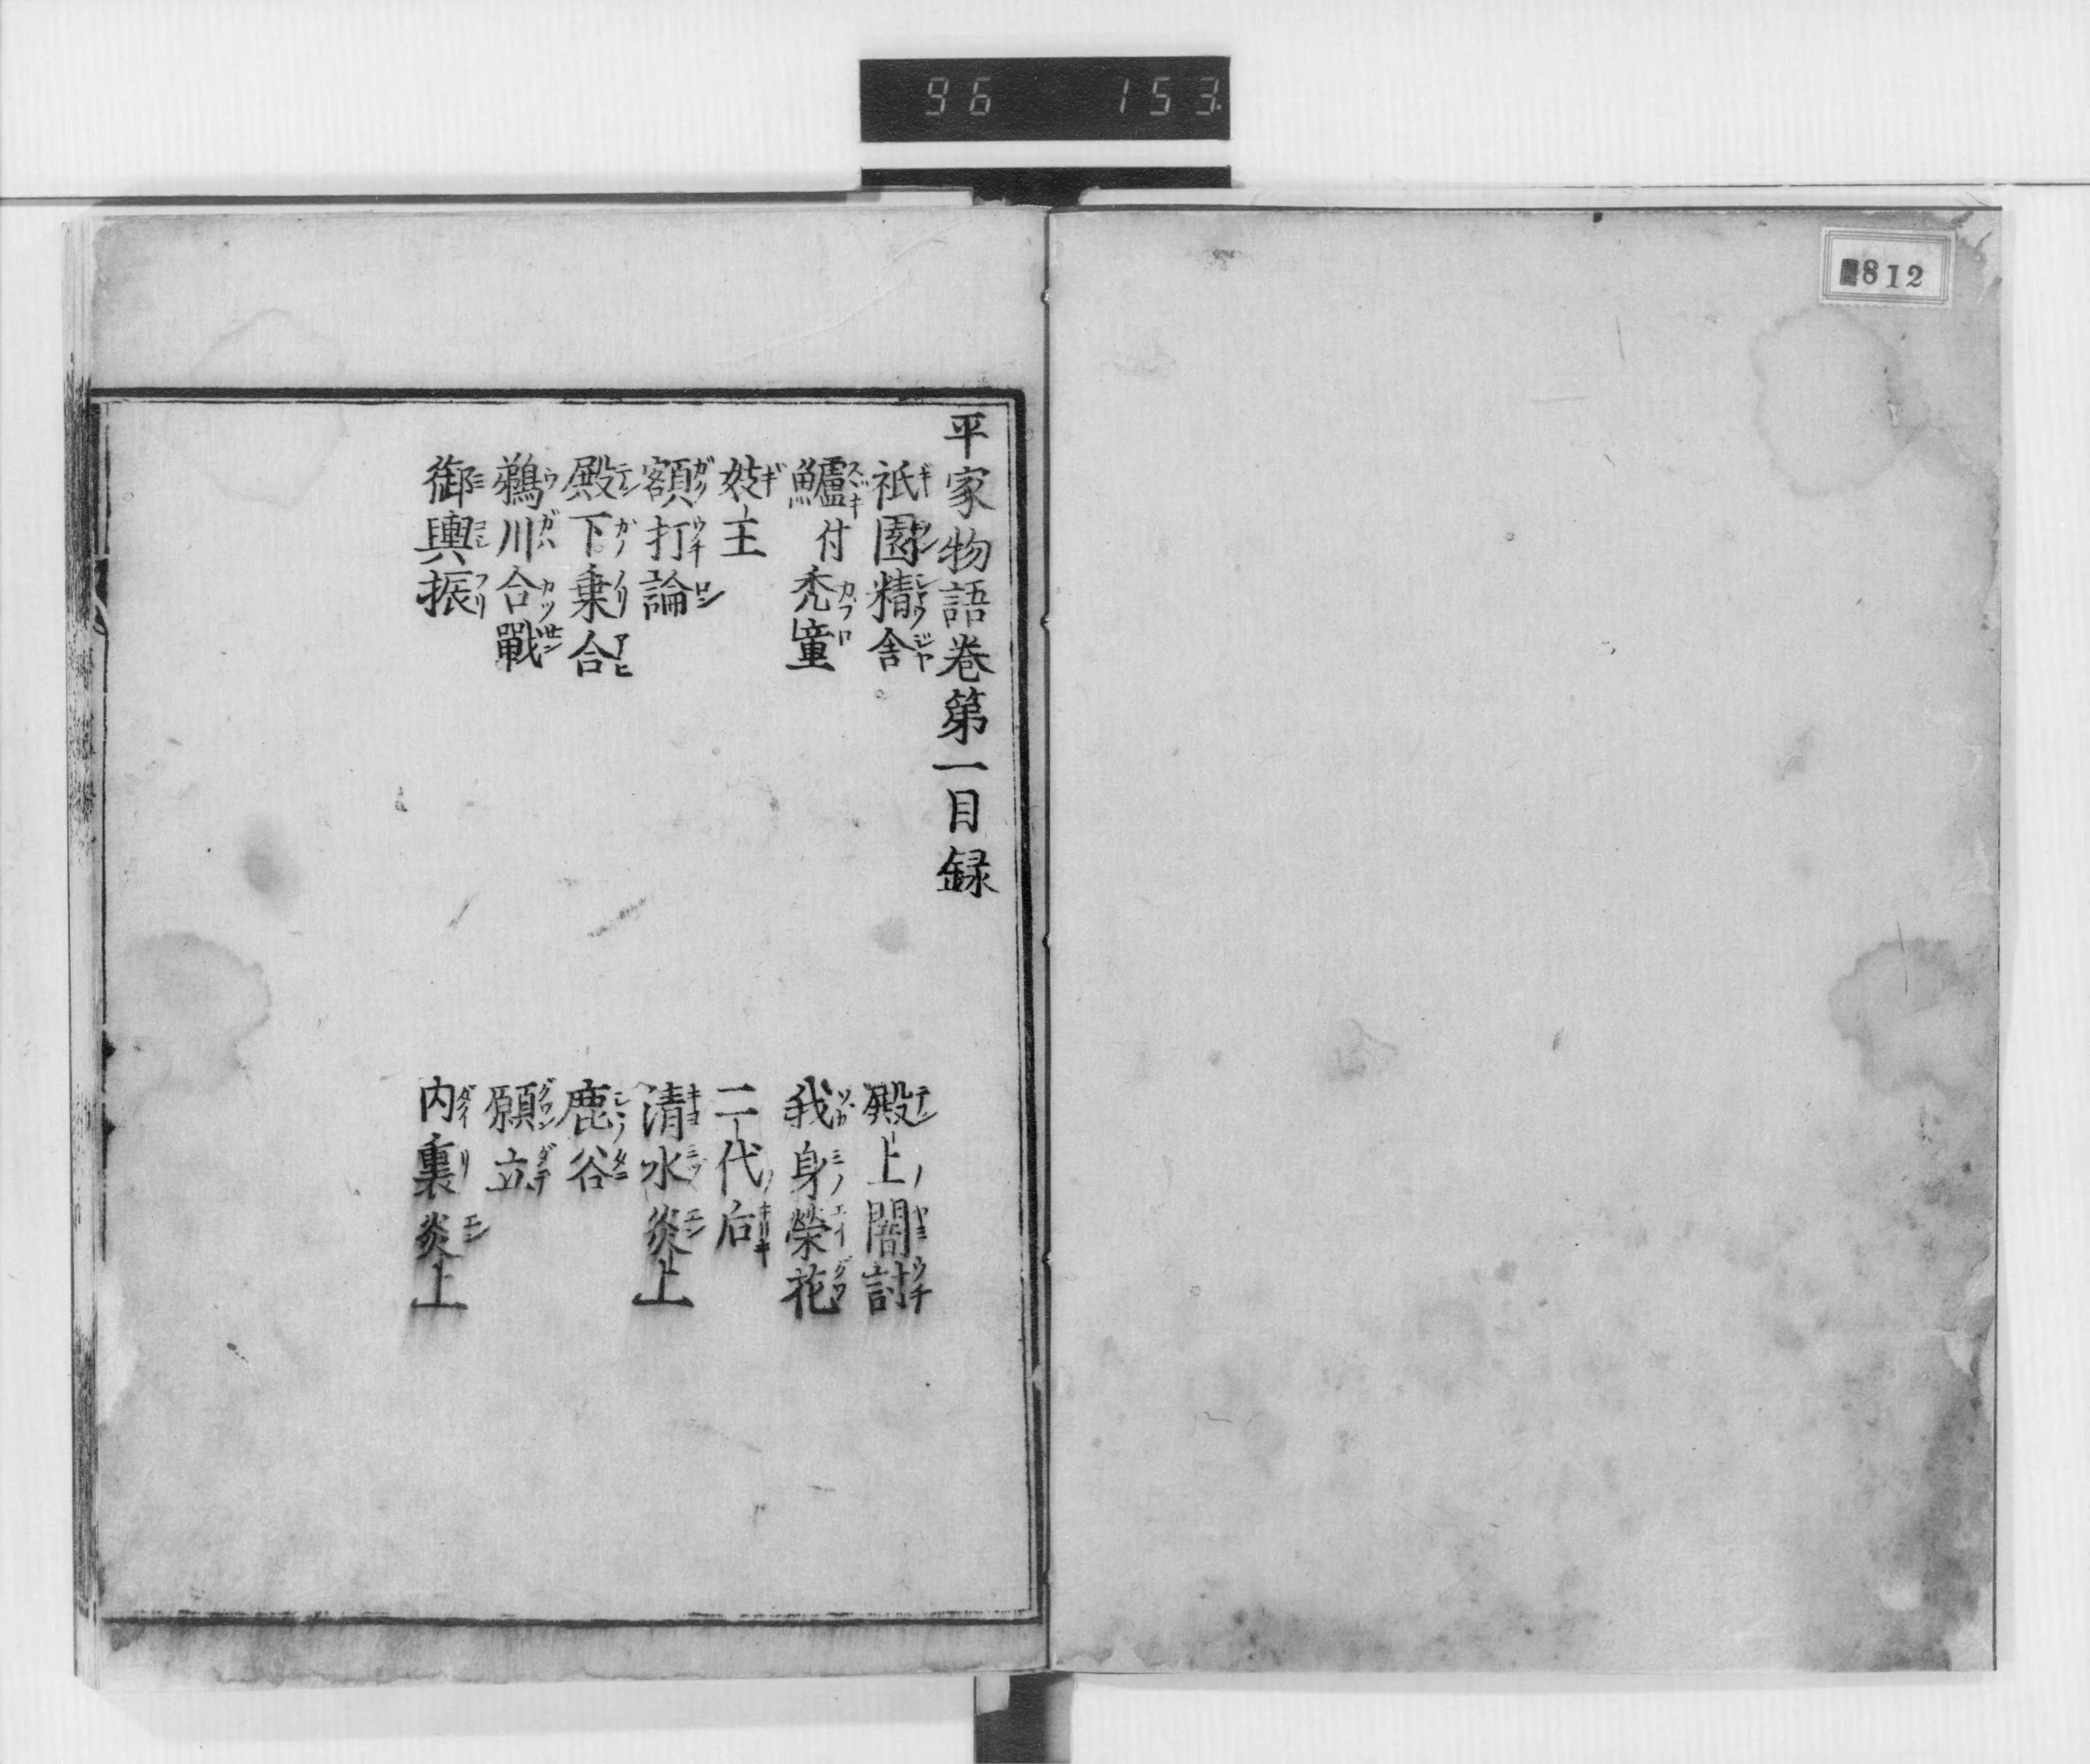 96 153
812
平家物語巻第一目録
祇園精舎
殿上闇討
鱸付禿童
我身榮花
妓王
二代后
額打論
清水炎上
殿下乗合
鹿谷
鵜川合戰
願立
御輿振
内裏炎上